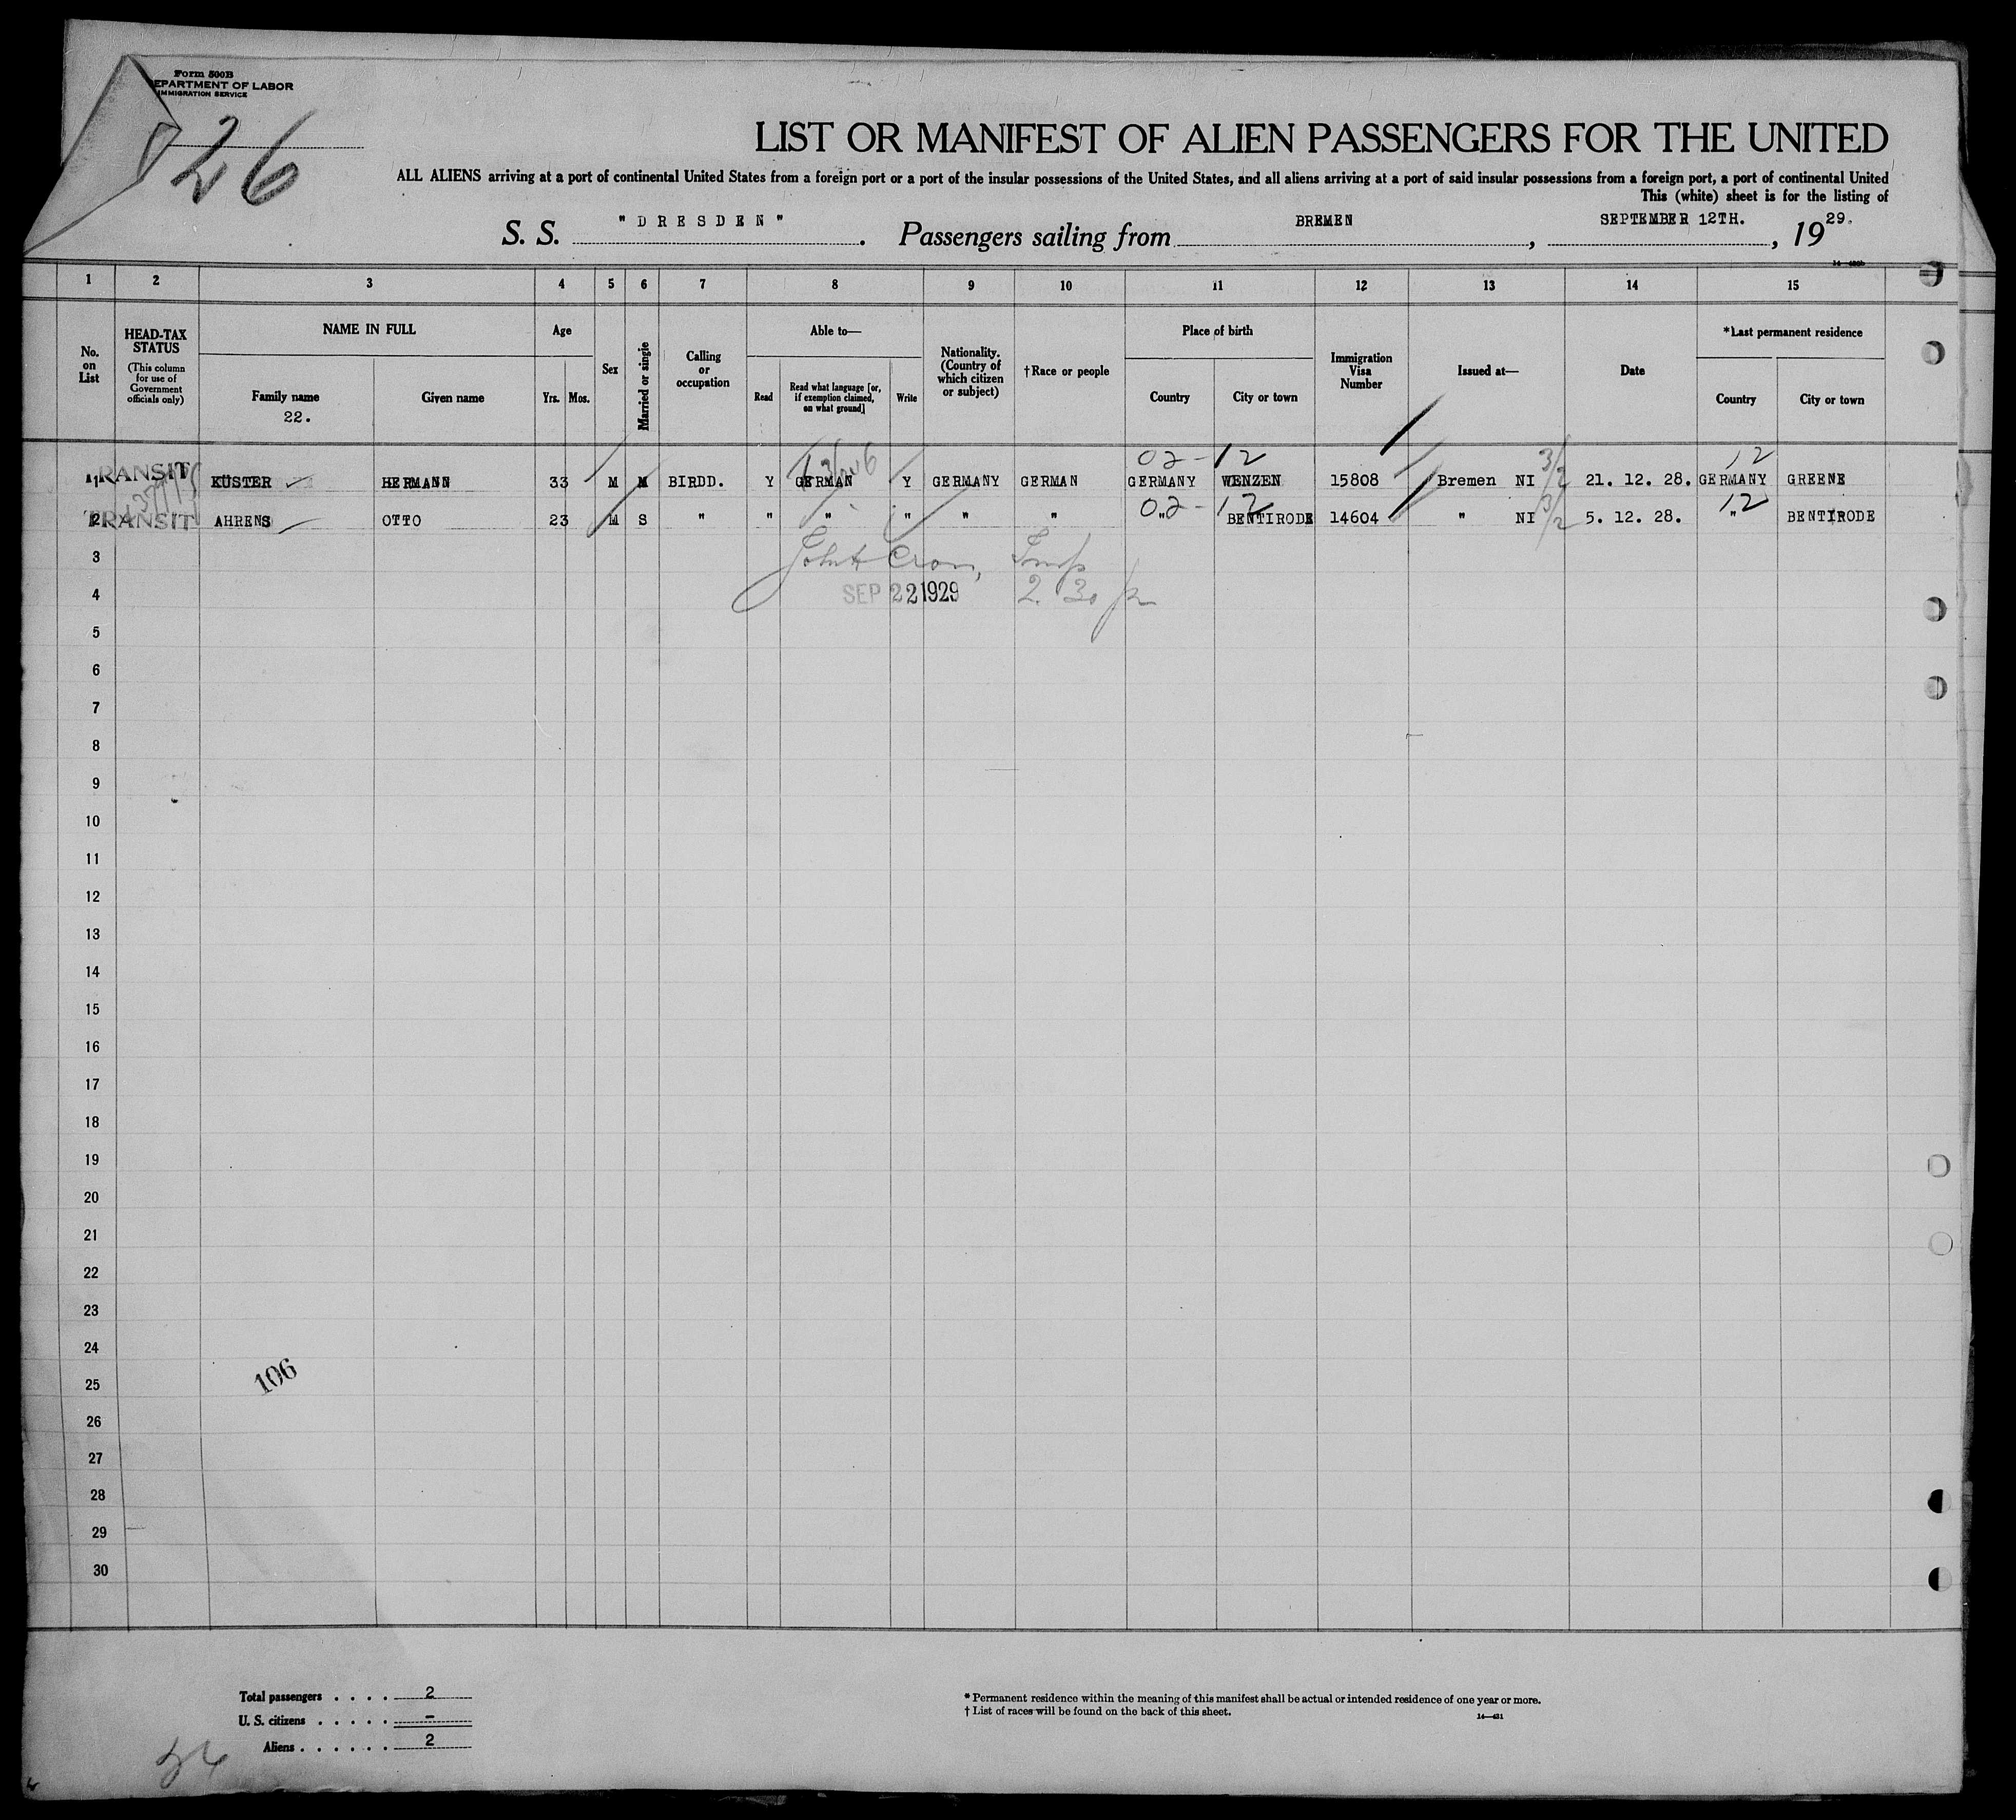 Form 500B
DEPARTMENT OF LABOR
IMMIGRATION SERVICE
26
LIST OR MANIFEST OF ALIEN PASSENGERS FOR THE UNITED
ALL ALIENS arriving at a port of continental United States from a foreign port or a port of the insular possessions of the United States, and all aliens arriving at a port of said insular possessions from a foreign port, a port of continental United
This (white) sheet is for the listing of
S. S. "DRESDEN". Passengers sailing from BREMEN, SEPTEMBER 12TH., 1929.
1 2 3 4 5 6 7 8 9 10 11 12 13 14 15
No. on List
HEAD-TAX STATUS
(This column for use of Government officials only)
NAME IN FULL
Family name
22.
Given name
Age
Yrs. Mos.
Sex
Married or single
Calling or occupation
Able to—
Read
Read what language [or, if exemption claimed, on what ground]
Write
Nationality. (Country of which citizen or subject)
†Race or people
Place of birth
Country
City or town
Immigration Visa Number
Issued at—
Date
*Last permanent residence
Country
City or town
02-12 12
1 TRANSIT KÜSTER HERMANN 33 M M BIRDD. Y GERMAN Y GERMANY GERMAN GERMANY WENZEN 15808 Bremen NI 3/2 21. 12. 28. GERMANY GREENE
02-12 12
2 TRANSIT AHRENS OTTO 23 M S " " " " " " " BENTIRODE 14604 " NI 3/2 5. 12. 28. " BENTIRODE
3
4 SEP 22 1929 2.30 p
5
6
7
8
9
10
11
12
13
14
15
16
17
18
19
20
21
22
23
24
25 106
26
27
28
29
30
Total passengers . . . . 2
U. S. citizens . . . . . –
Aliens . . . . . . 2
* Permanent residence within the meaning of this manifest shall be actual or intended residence of one year or more.
† List of races will be found on the back of this sheet.
14—431